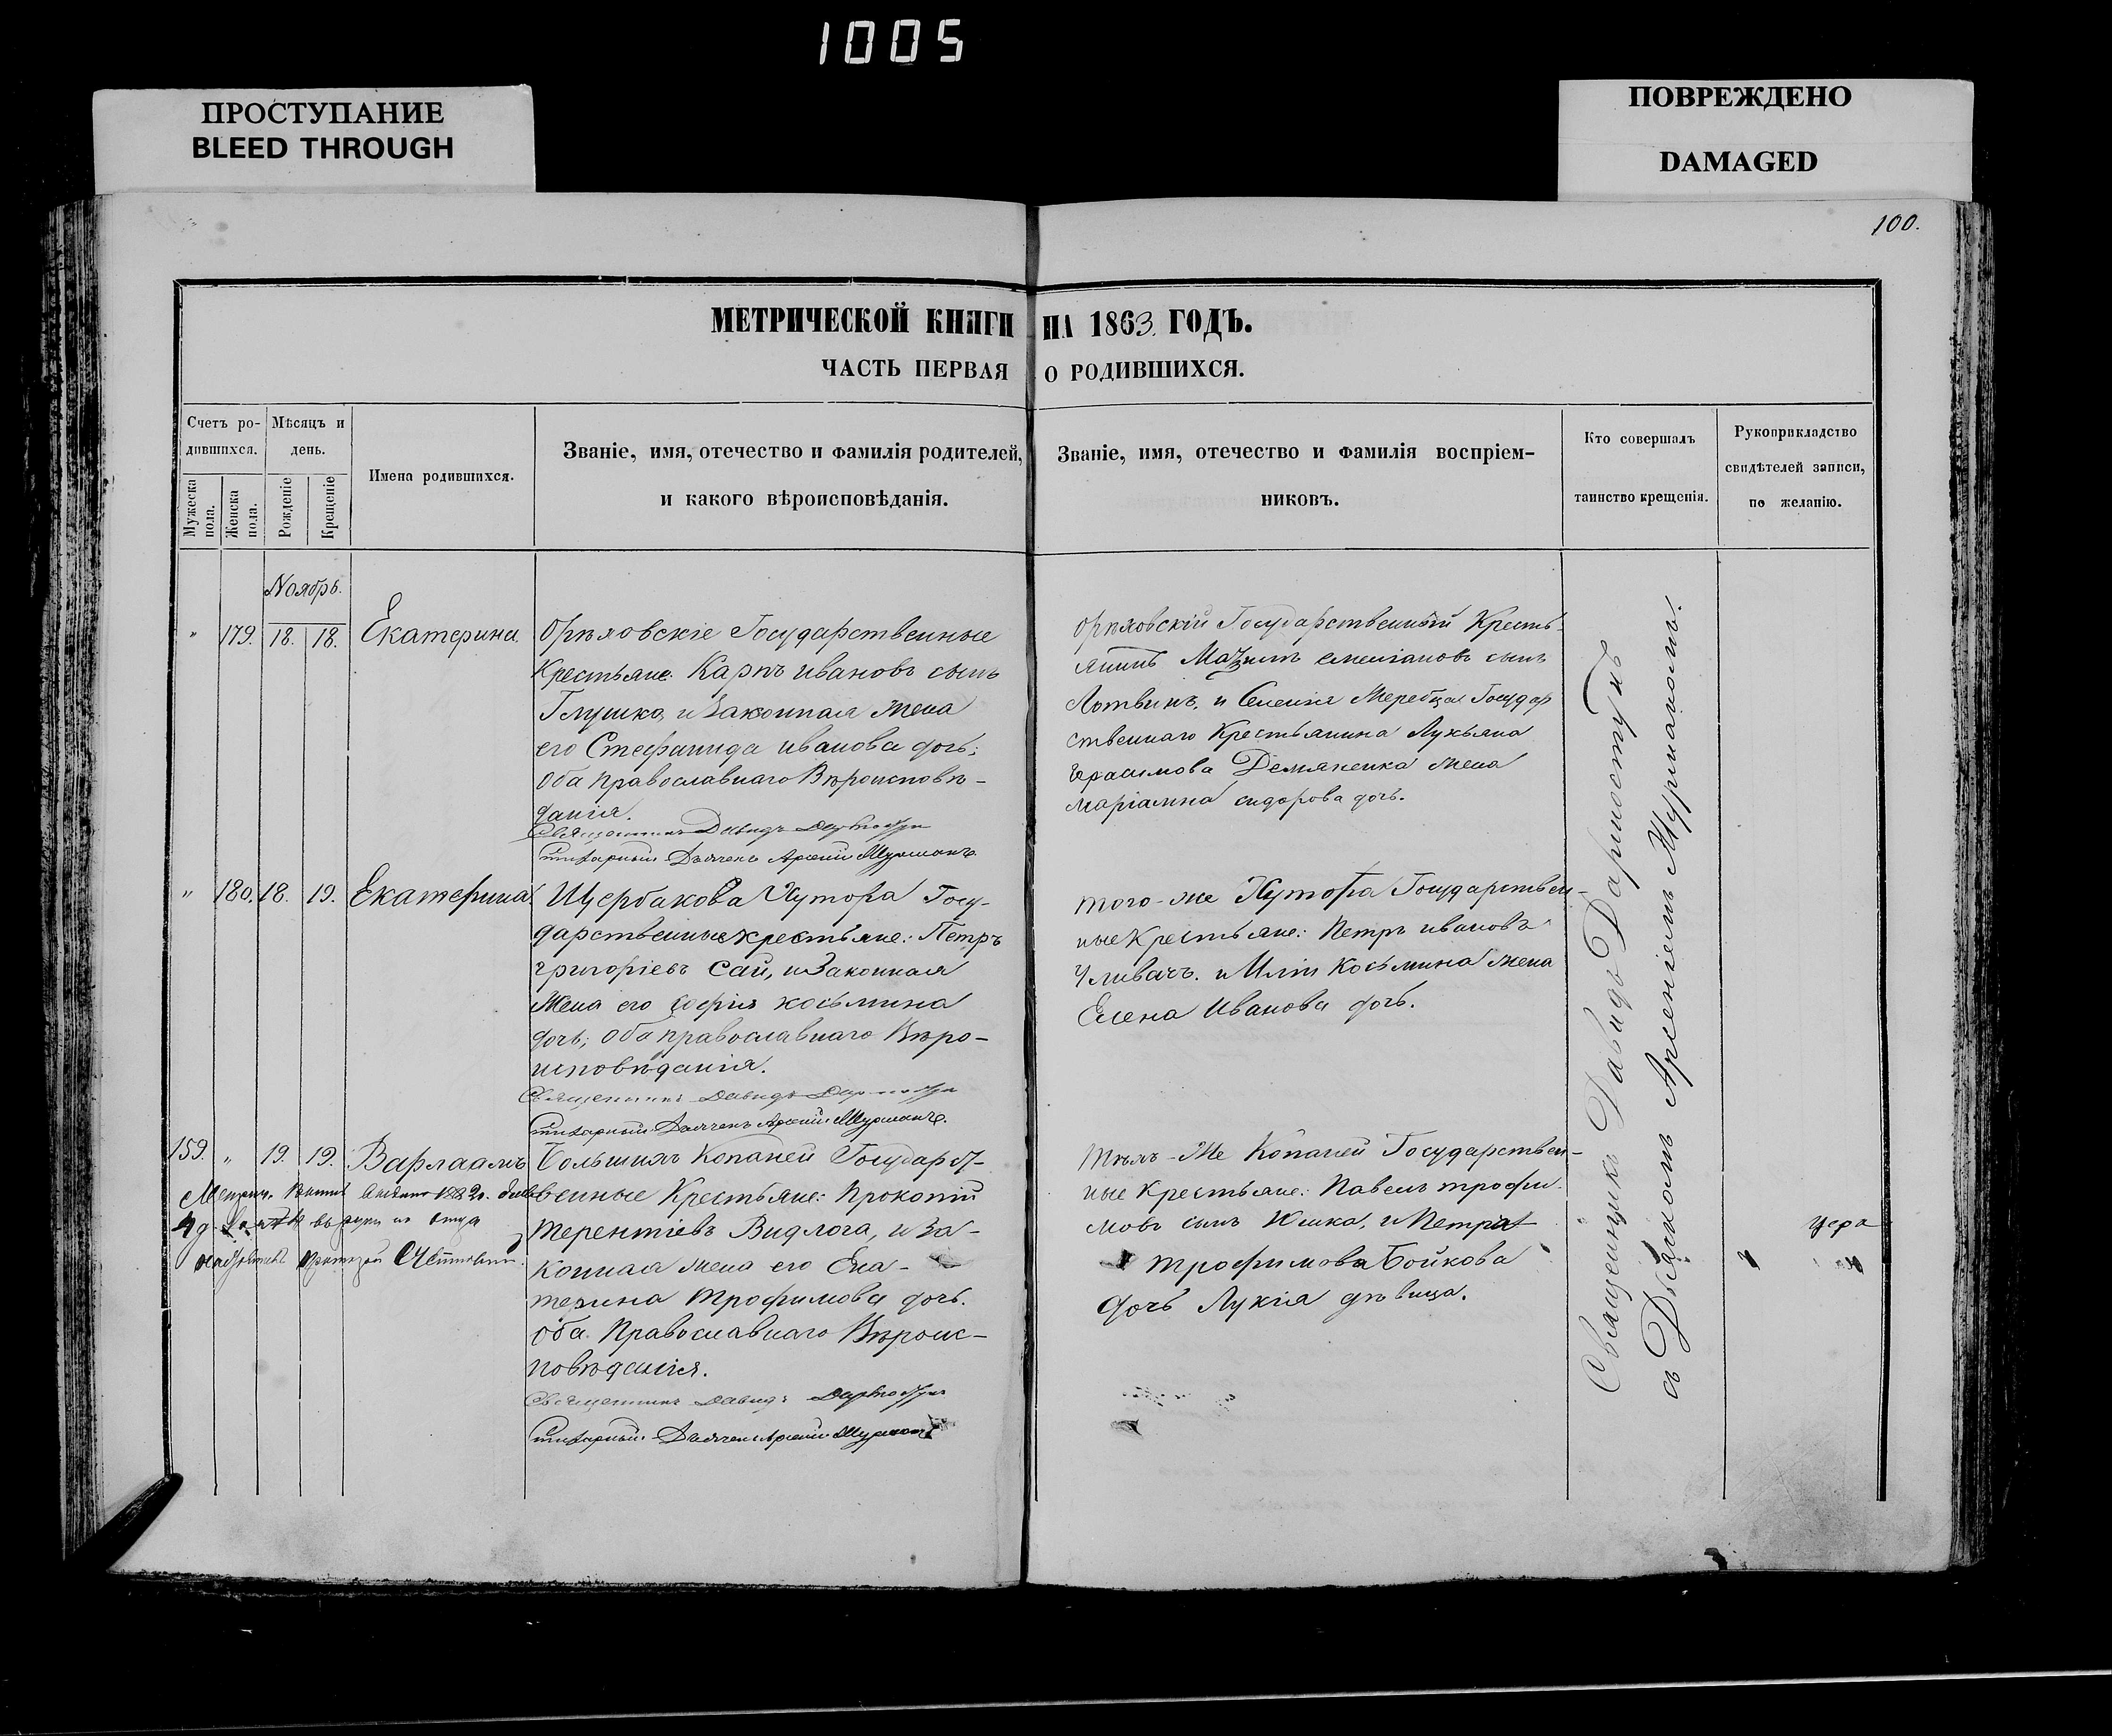 1005
ПРОСТУПАНИЕ
BLEED THROUGH
ПОВРЕЖДЕНО
DAMAGED
100.
МЕТРИЧЕСКОЙ КНИГИ НА 1863 ГОДЪ.
ЧАСТЬ ПЕРВАЯ О РОДИВШИХСЯ.
Счетъ ро-
дившихся.
Мужеска
пола.
Женска
пола.
Мѣсяцъ и
день.
Рожденіе
Крещеніе
Имена родившихся.
Званіе, имя, отечество и фамилія родителей,
и какого вѣроисповѣданія.
Званіе, имя, отечество и фамилія воспріем-
никовъ.
Кто совершалъ
таинство крещенія.
Рукоприкладство
свидѣтелей записи,
по желанію.
Ноябрь.
" 179. 18. 18. Екатерина
Орѣховскіе Государственные
Крестьяне: Карпъ ивановъ сынъ
Глушко, и Законная Жена
его Стефанида иванова дочь;
Оба православнаго Вѣроисповѣ-
данія.
Священникъ Давидъ
Дьячекъ Арсеній Мурманъ
орѣховскій Государственный Кресть-
янинъ сынъ
Литвинъ, и Селенія Жеребца Государ
ственнаго Крестьянина Лукьяна
Герасимова Демяненка Жена
маріамна сидорова дочь.
" 180. 18. 19. Екатерина
Щербакова Хутора Госу-
дарственные крестьяне: Петръ
григоріевъ Сай, и Законная
Жена его софія косьмина
дочь; Оба православнаго Вѣро-
исповѣданія.
Священникъ Давидъ
Дьячекъ Арсеній Мурманъ.
того-же Хутора Государствен-
ные Крестьяне: Петръ ивановъ
и Иліи Косьмина жена
Елена Иванова дочь.
159. " 19. 19. Варлаамъ
Большихъ Копаней Государст-
венные Крестьяне: Прокопій
терентіевъ Видлога, и За-
конная жена его Ека-
терина трофимова дочь.
Оба Православнаго Вѣроис-
повѣданія.
Священникъ Давидъ
Дьячекъ Арсеній Мурманъ
тѣхъ-Же Копаней Государствен-
ные крестьяне: Павелъ трофи-
мовъ сынъ Юшка, и Петра
трофимова Бойкова
дочь Лукія дѣвица.
Священникъ Давидъ
съ Дьячкомъ Арсеніемъ Мурманомъ.